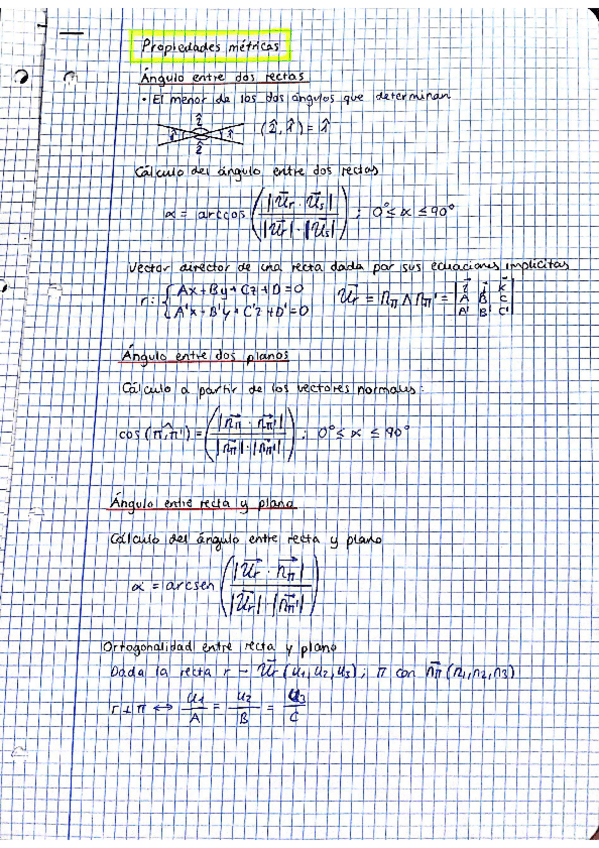 Propiedades métricas
Ángulo entre dos rectas
• El menor de los dos ángulos que determinan
2̂
1̂ 1̂ (2̂, 1̂) = 1̂
2̂
Cálculo del ángulo entre dos rectas
α = arccos (|u⃗r · u⃗s| / |u⃗r| · |u⃗s|) ; 0° ≤ α ≤ 90°
Vector director de una recta dada por sus ecuaciones implícitas
r: { Ax + By + Cz + D = 0
A'x + B'y + C'z + D' = 0
u⃗r = nπ ∧ nπ' = | i⃗ j⃗ k⃗
A B C
A' B' C' |
Ángulo entre dos planos
Cálculo a partir de los vectores normales:
cos (π,^π') = (|n⃗π · n⃗π'| / |n⃗π| · |n⃗π'|) ; 0° ≤ α ≤ 90°
Ángulo entre recta y plano
Cálculo del ángulo entre recta y plano
α = arcsen (|u⃗r · n⃗π| / |u⃗r| · |n⃗π'|)
Ortogonalidad entre recta y plano
Dada la recta r – u⃗r (u1, u2, u3) ; π con n⃗π (n1, n2, n3)
r ⊥ π ↔ u1/A = u2/B = u3/C